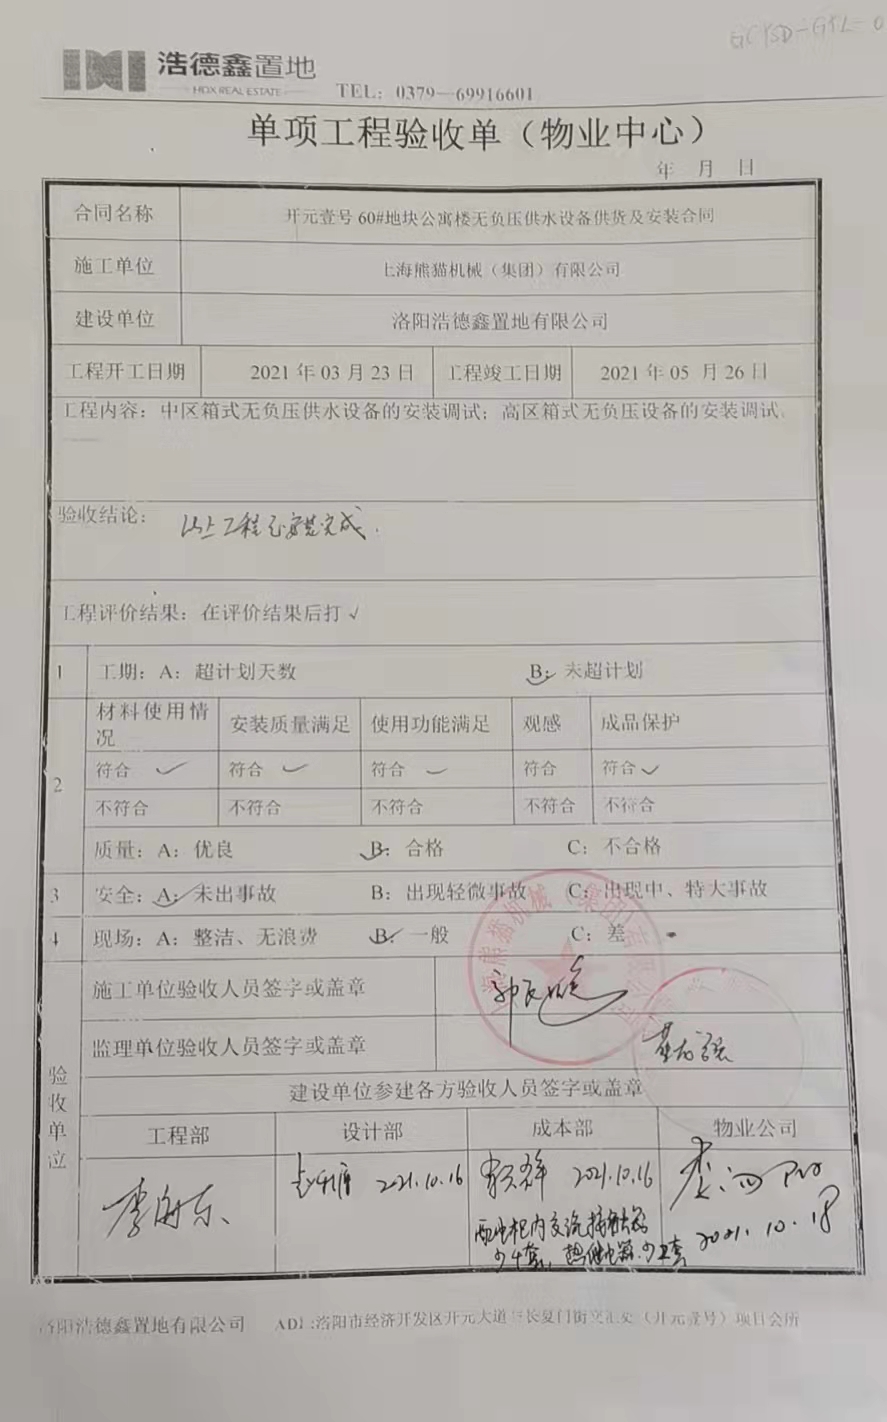 浩德鑫置地
HDX REAL ESTATE
TEL：0379—69916601
单项工程验收单（物业中心）
年 月 日
合同名称 开元壹号60#地块公寓楼无负压供水设备供货及安装合同
施工单位 上海熊猫机械（集团）有限公司
建设单位 洛阳浩德鑫置地有限公司
工程开工日期 2021 年 03 月 23 日 工程竣工日期 2021 年 05 月 26 日
工程内容：中区箱式无负压供水设备的安装调试；高区箱式无负压设备的安装调试。
验收结论： 以上工程已安装完成.
工程评价结果：在评价结果后打√
1 工期：A：超计划天数 B：未超计划
2 材料使用情况 安装质量满足 使用功能满足 观感 成品保护
符合 ✓ 符合 ✓ 符合 ✓ 符合 符合 ✓
不符合 不符合 不符合 不符合 不符合
质量：A：优良 B：合格 C：不合格
3 安全：A：未出事故 B：出现轻微事故 C：出现中、特大事故
4 现场：A：整洁、无浪费 B：一般 C：差
验收单位
施工单位验收人员签字或盖章
监理单位验收人员签字或盖章
建设单位参建各方验收人员签字或盖章
工程部 设计部 成本部 物业公司
李海东
2021.10.16
2021.10.16
配电柜内交流接触器
少4套，热继电器少2套
2021.10.18
洛阳浩德鑫置地有限公司 ADD:洛阳市经济开发区开元大道与长夏门街交汇处（开元壹号）项目会所